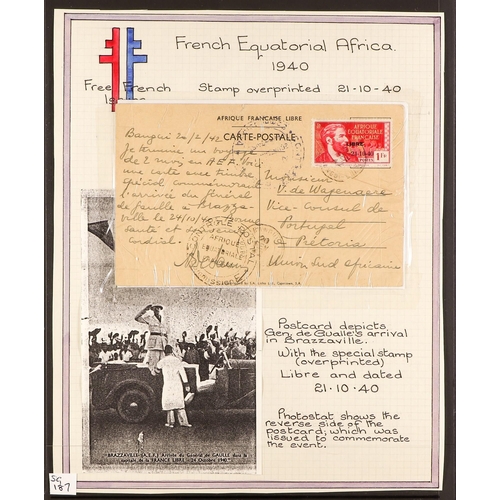 French Equatorial Africa.
1940
Free French Stamp overprinted 21-10-40
Issues
AFRIQUE FRANCAISE LIBRE
CARTE-POSTALE
AFRIQUE
ÉQUATORIALE
FRANÇAISE
1 Fr
Bangui 20/2/42
Je termine un voyage
de 2 mois en A.E.F. Voici
une carte avec timbre
spécial commémorant
l'arrivée du général
de Gaulle à Brazza
ville le 24/10/40. Bonne
santé et
cordial.
Monsieur
V. de Wagenaare
Vice-Consul de
Portugal
à Prétoria
Union Sud africaine
Postcard depicts
Gen. de Gualle's arrival
in Brazzaville.
With the special stamp
(overprinted)
Libre and dated
21-10-40
Photostat shows the
reverse side of the
postcard, which was
issued to commemorate
the event.
BRAZZAVILLE (A.E.F.) Arrivée du Général de GAULLE dans la
capitale de la FRANCE LIBRE (24 Octobre 1940)
SG
187